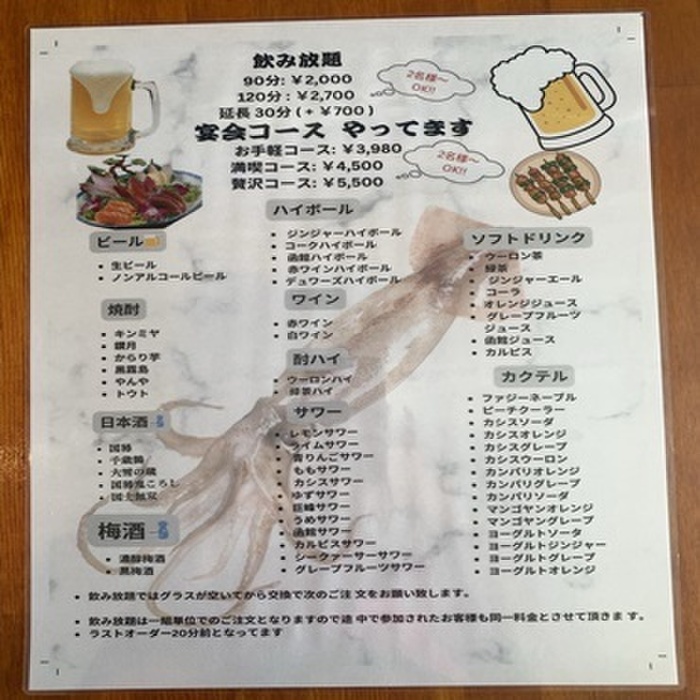 飲み放題
90分: ￥2,000
120分 : ￥2,700
延長 30分 ( + ￥700 )
2名様～
OK!!
宴会コース やってます
お手軽コース: ￥3,980
満喫コース: ￥4,500
贅沢コース: ￥5,500
2名様～
OK!!
ビール
生ビール
ノンアルコールビール
焼酎
キンミヤ
鏡月
からり芋
黒霧島
やんや
トウト
日本酒
国稀
千歳鶴
大雪の蔵
国稀鬼ころし
国士無双
梅酒
濃醇梅酒
黒梅酒
ハイボール
ジンジャーハイボール
コークハイボール
函館ハイボール
赤ワインハイボール
デュワーズハイボール
ワイン
赤ワイン
白ワイン
酎ハイ
ウーロンハイ
緑茶ハイ
サワー
レモンサワー
ライムサワー
青りんごサワー
ももサワー
カシスサワー
ゆずサワー
巨峰サワー
うめサワー
函館サワー
カルピスサワー
シークァーサーサワー
グレープフルーツサワー
ソフトドリンク
ウーロン茶
緑茶
ジンジャーエール
コーラ
オレンジジュース
グレープフルーツ
ジュース
函館ジュース
カルピス
カクテル
ファジーネーブル
ピーチクーラー
カシスソーダ
カシスオレンジ
カシスグレープ
カシスウーロン
カンパリオレンジ
カンパリグレープ
カンパリソーダ
マンゴヤンオレンジ
マンゴヤングレープ
ヨーグルトソータ
ヨーグルトジンジャー
ヨーグルトグレープ
ヨーグルトオレンジ
飲み放題ではグラスが空いてから交換で次のご注 文をお願い致します。
飲み放題は一組単位でのご注文となりますので途 中で参加されたお客様も同一料金とさせて頂きま す。
ラストオーダー20分前となってます